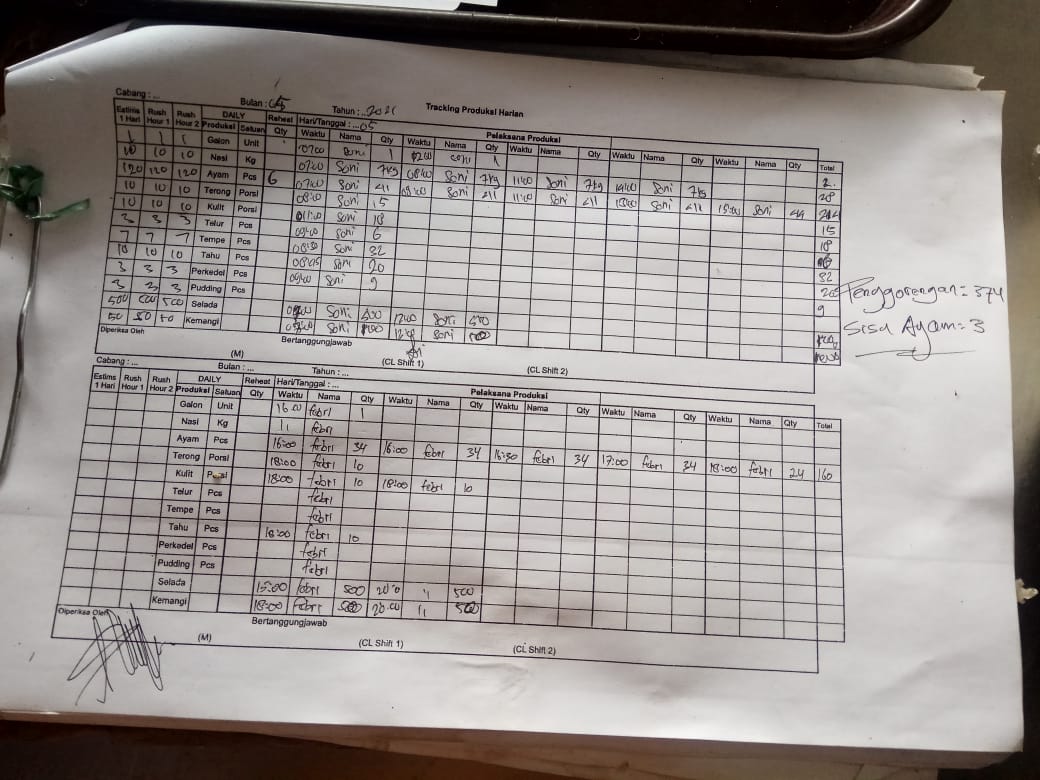 Tracking Produksi Harian
Cabang : ... Bulan : 05 Tahun : ..2021
Estims 1 Hari Rush Hour 1 Rush Hour 2 DAILY Reheat Hari/Tanggal : ...05 Pelaksana Produksi
Produksi Satuan Qty Waktu Nama Qty Waktu Nama Qty Waktu Nama Qty Waktu Nama Qty Waktu Nama Qty Total
1 1 1 Galon Unit 07:00 Soni 1 1 2
10 10 10 Nasi Kg 07:00 Soni 7kg 08:00 Soni 7kg 11:00 Soni 7kg 14:00 Soni 7kg 28
120 120 120 Ayam Pcs 6 07:00 Soni 08:00 Soni 11:00 Soni Soni 15:00 Soni 44
10 10 10 Terong Porsi 08:00 Soni 15 15
10 10 10 Kulit Porsi Soni 18 18
3 3 3 Telur Pcs 09:00 Soni 6
7 7 7 Tempe Pcs 08:30 Soni 32 32
10 10 10 Tahu Pcs 08:15 Soni 20 20
3 3 3 Perkedel Pcs 09:00 Soni 9 9
3 3 3 Pudding Pcs
500 500 500 Selada Soni 500 12:00 Soni 500
50 50 50 Kemangi Soni Soni
Diperiksa Oleh Bertanggungjawab
(M) (CL Shift 1) (CL Shift 2)
Penggorengan = 374
Sisa Ayam = 3
Cabang : ... Bulan : ... Tahun : ...
Estims 1 Hari Rush Hour 1 Rush Hour 2 DAILY Reheat Hari/Tanggal : ... Pelaksana Produksi
Produksi Satuan Qty Waktu Nama Qty Waktu Nama Qty Waktu Nama Qty Waktu Nama Qty Waktu Nama Qty Total
Galon Unit 16:00 febri 1
Nasi Kg 11 febri
Ayam Pcs 16:00 febri 34 16:00 febri 34 16:30 febri 34 17:00 febri 34 18:00 febri 24 160
Terong Porsi 18:00 febri 10
Kulit Porsi 18:00 febri 10 18:00 febri 10
Telur Pcs febri
Tempe Pcs febri
Tahu Pcs 18:00 febri 10
Perkedel Pcs febri
Pudding Pcs febri
Selada 15:00 febri 500 20:0 11 500
Kemangi 18:00 febri 500 20.00 11 500
Diperiksa Oleh Bertanggungjawab
(M) (CL Shift 1) (CL Shift 2)